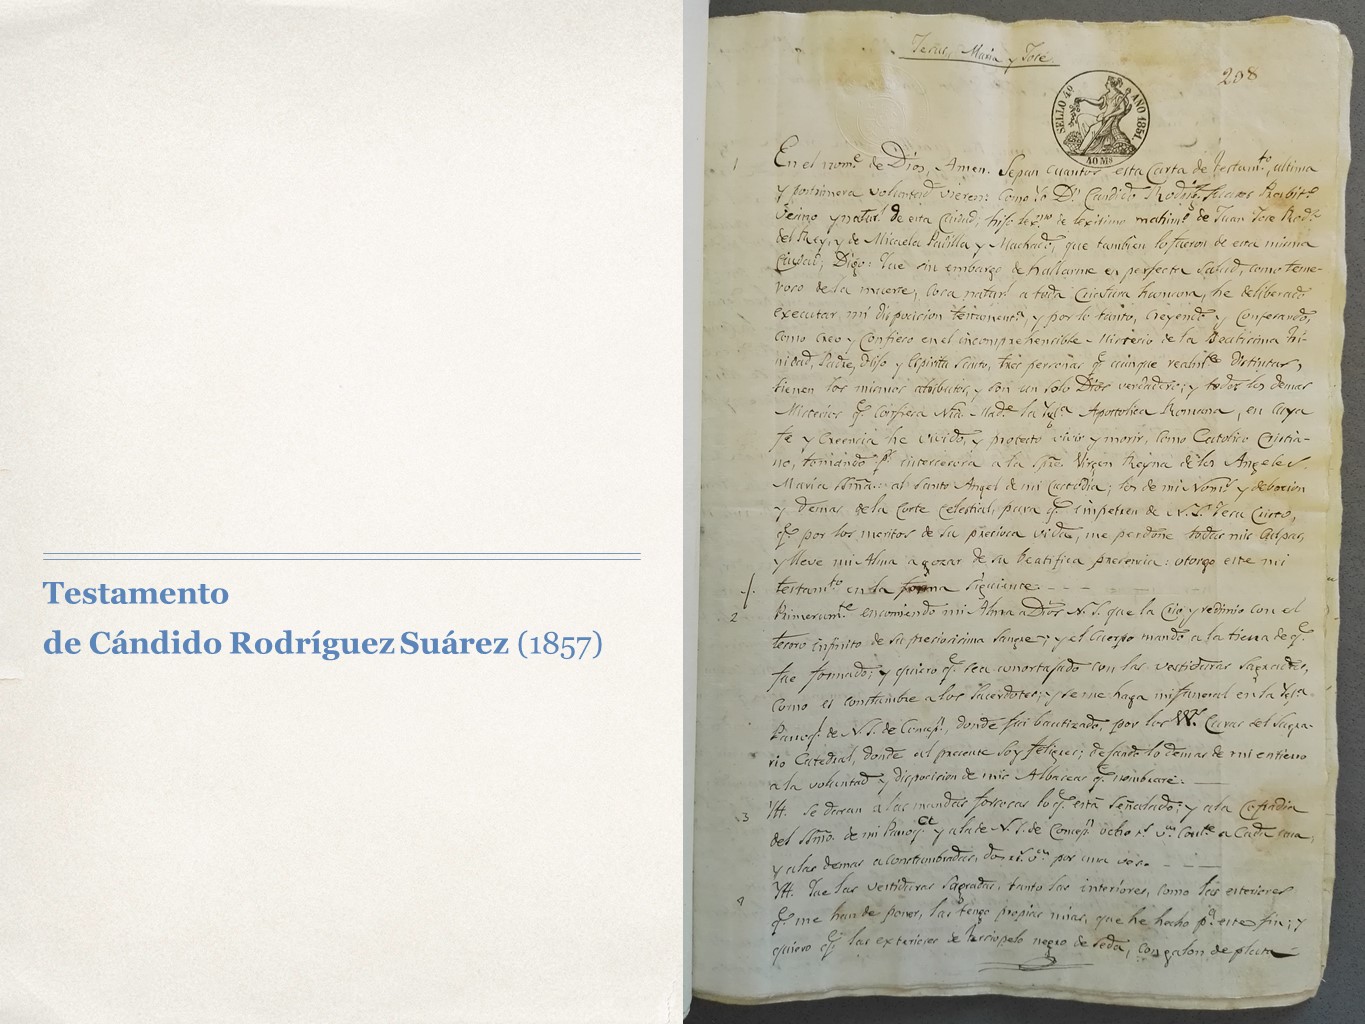 Testamento
de Cándido Rodríguez Suárez (1857)
Jesus, Maria y José
208
SELLO 4º AÑO 1851.
40 Ms
1 En el nome. de Dios, Amen. Sepan cuantos esta Carta de Testamto, ultima
y postrimera voluntad vieren: como Yo Dn. Candido Rodrigz. Suares
vecino y naturl. de esta Ciudad, hijo de lexitimo matrimo. de Juan Jose Rodz.
del Rey, y de Micaela Padilla y Machado, que tambien lo fueron de esta misma
Ciudad; Digo: Que sin embargo de hallarme en perfecta salud, como teme-
roso de la muerte, cosa natural a toda criatura humana, he deliberado
executar mi disposicion testamenta. y por lo tanto, creyendo y confesando,
como creo y confieso en el incomprehencible Misterio de la Beatisima Tri-
nidad, Padre, Hijo y Espiritu Santo, tres personas q. aunque realmte distintas,
tienen los mismos atributos, y son un solo Dios verdadero; y todos los demas
Misterios q. confiesa Nta. Made. la Ygla. Apostolica Romana, en cuya
fe y creencia he vivido, y protexto vivir y morir, como Catolico Cristia-
no, tomando pr. intercesora a la Sma. Virgen Reyna de los Angeles
Maria SSma. al Santo Angel de mi Custodia; los de mi Nome. y debocion
y demas de la Corte Celestial, para q. impetren de N.S. Jesu Cristo,
q. por los meritos de su preciosa vida, me perdone todas mis culpas,
y lleve mi Alma a gozar de su beatifica presencia: otorgo este mi
testamto en la forma siguiente.
2 Primeramte. encomiendo mi Alma a Dios N.S. que la crio y redimio con el
tesoro infinito de su preciosisima sangre; y el cuerpo mando a la tierra de q.
fue formado; y quiero q. sea amortajado con las vestiduras sagradas,
como es constumbre a los Sacerdotes; y se me haga mi funeral en la Ygla.
Parroql. de N.S. de Concepn., donde fui bautizado, por los VV. Curas del Sagra-
rio Catedral, donde al presente soy feligres; dejando lo demas de mi entierro
a la voluntad y disposicion de mis Albaceas q. nombrare.
3 Yt. se daran a las mandas forsosas lo q. está señalado; y a la Cofradia
del SSmo. de mi Parroql. y a la de N.S. de Concepn. ocho rs. vn. a cada una,
y a las demas acostumbradas, dos rs. vn. por una ves.
4 Yt. Que las vestiduras sagradas, tanto las interiores, como las esteriores
q. me han de poner, las tengo propias mias, que he hecho pa. este fin; y
quiero q. las exteriores de terciopelo negro de seda, con galon de plata